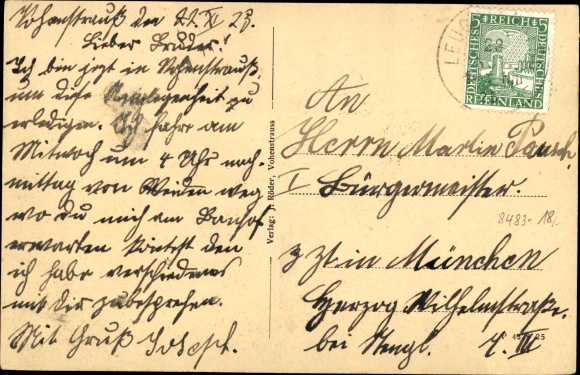 Vohenstrauß den 22. XI 25.
Lieber Bruder!
Ich bin jezt in Vohenstrauß,
um diese Angelegenheit zu
erledigen. Ich fahre am
Mittwoch um 4 Uhr nach-
mittag von Weiden weg
wo du mich am Banhof
erwarten könntest den
ich habe verschiedenes
mit dir zubesprechen.
Mit Gruß Joseph.
Verlag: J. Röder, Vohenstrauss
5 REICH 5
DEUTSCHES
DEUTSCHES
RHEINLAND
An
Herrn Martin
I Bürgermeister.
8483- 18,-
z Zt in München
Herzog Wilhelmstraße.
bei Stengl. 4. III